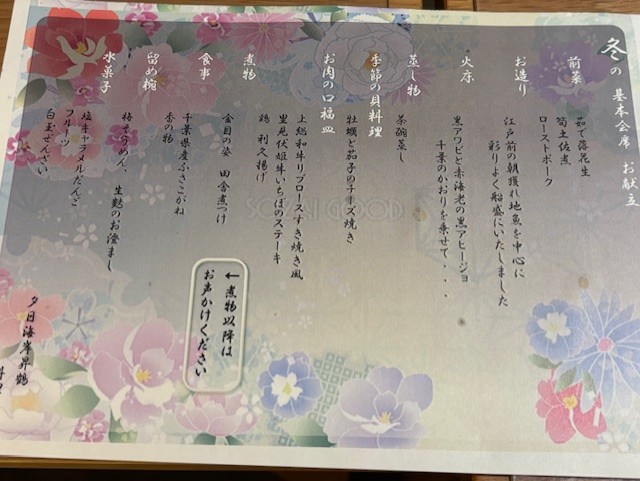 冬の 基本会席 お献立
前菜
茹で落花生
筍土佐煮
ローストポーク
お造り
江戸前の朝獲れ地魚を中心に
彩りよく船盛にいたしました
火床
黒アワビと赤海老の黒アヒージョ
千葉のかおりを乗せて・・・
蒸し物
茶碗蒸し
季節の貝料理
牡蠣と茄子のチーズ焼き
お肉の口福皿
上総和牛リブロースすき焼き風
里見伏姫牛いちぼのステーキ
鶏 利久揚げ
煮物
金目の姿 田舎煮つけ
←煮物以降は
お声かけください
食事
千葉県産ふさこがね
香の物
留め椀
梅そうめん、生麩のお澄まし
水菓子
塩キャラメルだんご
フルーツ
白玉ぜんざい
夕日海岸昇鶴